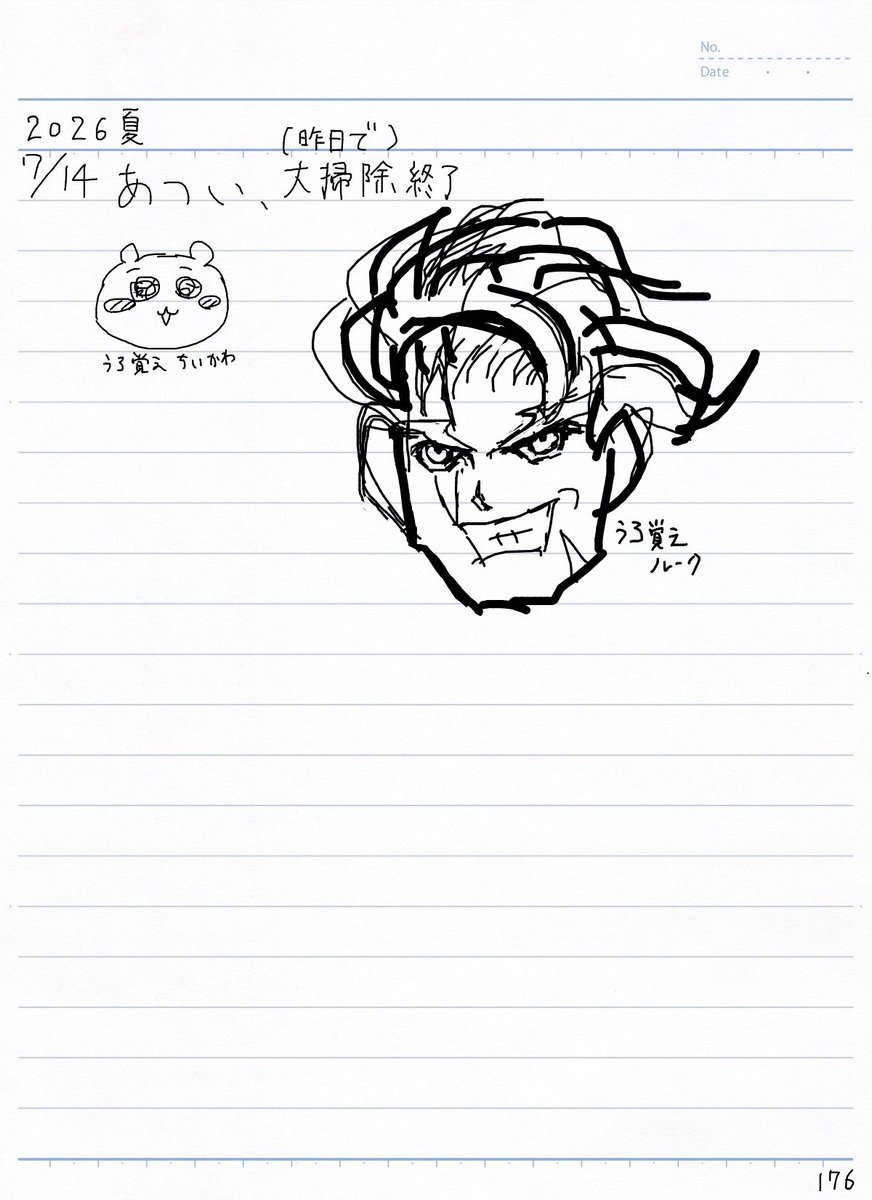 No.
Date
2026夏
(昨日で)
7/14 あつい、大掃除終了
うろ覚え ちいかわ
うろ覚え
ルーク
176